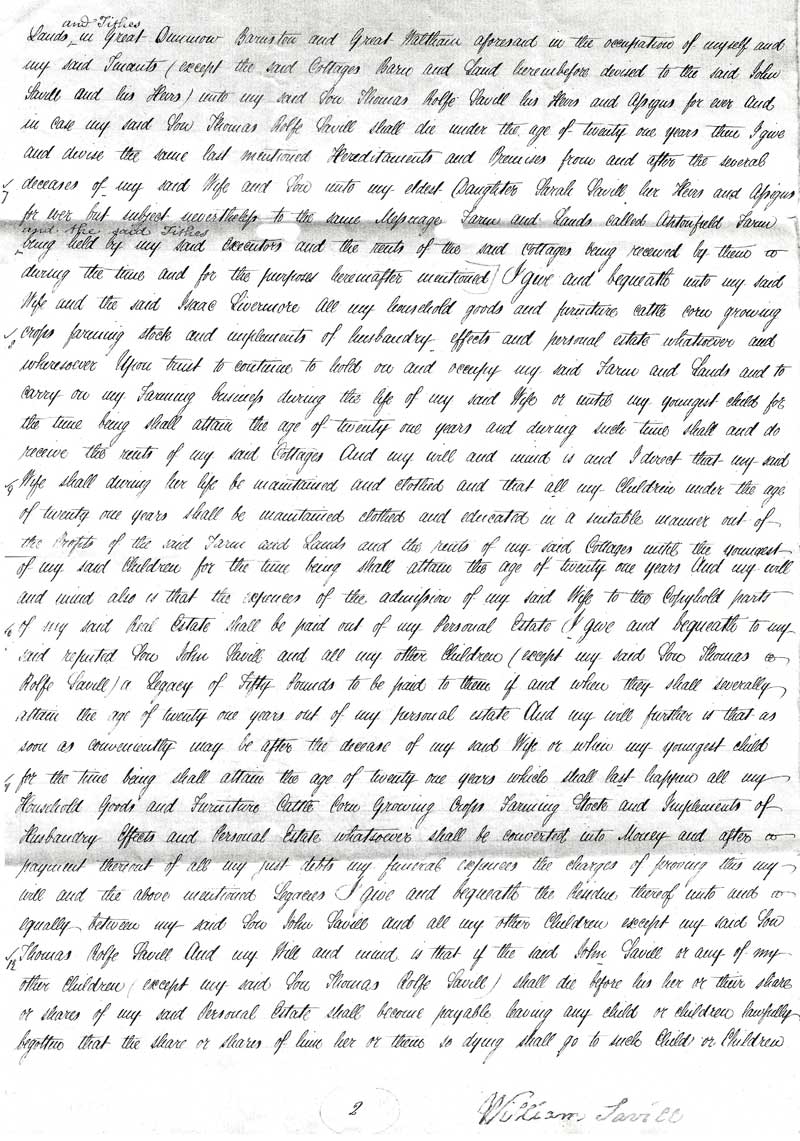 and Tithes
Lands in Great Dunmow Barnston and Great Waltham aforesaid in the occupation of myself and
my said Tenants (except the said Cottages Barn and Land herembefore devised to the said John
Savill and his Heirs) unto my said Son Thomas Rolfe Savill his Heirs and Assigns for ever And
in case my said Son Thomas Rolfe Savill shall die under the age of twenty one years then I give
and devise the same last mentioned Hereditaments and Premises from and after the several
7 deceases of my said Wife and Son unto my eldest Daughter Sarah Savill her Heirs and Assigns
for ever but subject nevertheless to the same Messuage Farm and Lands called Farm
and the said Tithes
being held by my said Executors and the rents of the said cottages being received by them
during the time and for the purposes hereinafter mentioned I give and bequeath unto my said
Wife and the said Isaac Livermore All my household goods and furniture cattle corn growing
8 crops farming stock and implements of husbandry effects and personal estate whatsoever and
wheresoever Upon trust to continue to hold on and occupy my said Farm and Lands and to
carry on my Farming business during the life of my said Wife or until my youngest child for
the time being shall attain the age of twenty one years and during such time shall and do
receive the rents of my said Cottages And my will and mind is and I direct that my said
9 Wife shall during her life be maintained and clothed and that all my Children under the age
of twenty one years shall be maintained clothed and educated in a suitable manner out of
the Profits of the said Farm and Lands and the rents of my said Cottages until the youngest
of my said Children for the time being shall attain the age of twenty one years And my will
and mind also is that the expences of the admission of my said Wife to the Copyhold parts
10 of my said Real Estate shall be paid out of my Personal Estate I give and bequeath to my
said reputed Son John Savill and all my other Children (except my said Son Thomas
Rolfe Savill) a Legacy of Fifty Pounds to be paid to them if and when they shall severally
attain the age of twenty one years out of my personal estate And my will further is that as
soon as conveniently may be after the decease of my said Wife or when my youngest child
for the time being shall attain the age of twenty one years which shall last happen all my
Household Goods and Furniture Cattle Corn Growing Crops Farming Stock and Implements of
Husbandry Effects and Personal Estate whatsoever shall be converted into Money and after
payment thereout of all my just debts my funeral expences the charges of proving this my
will and the above mentioned Legacies I give and bequeath the Residue thereof unto and
equally between my said Son John Savill and all my other Children except my said Son
12 Thomas Rolfe Savill And my Will and mind is that if the said John Savill or any of my
other Children (except my said Son Thomas Rolfe Savill) shall die before his her or their share
or shares of my said Personal Estate shall become payable leaving any child or children lawfully
begotten that the share or shares of him her or them so dying shall go to such Child or Children
2
William Savill